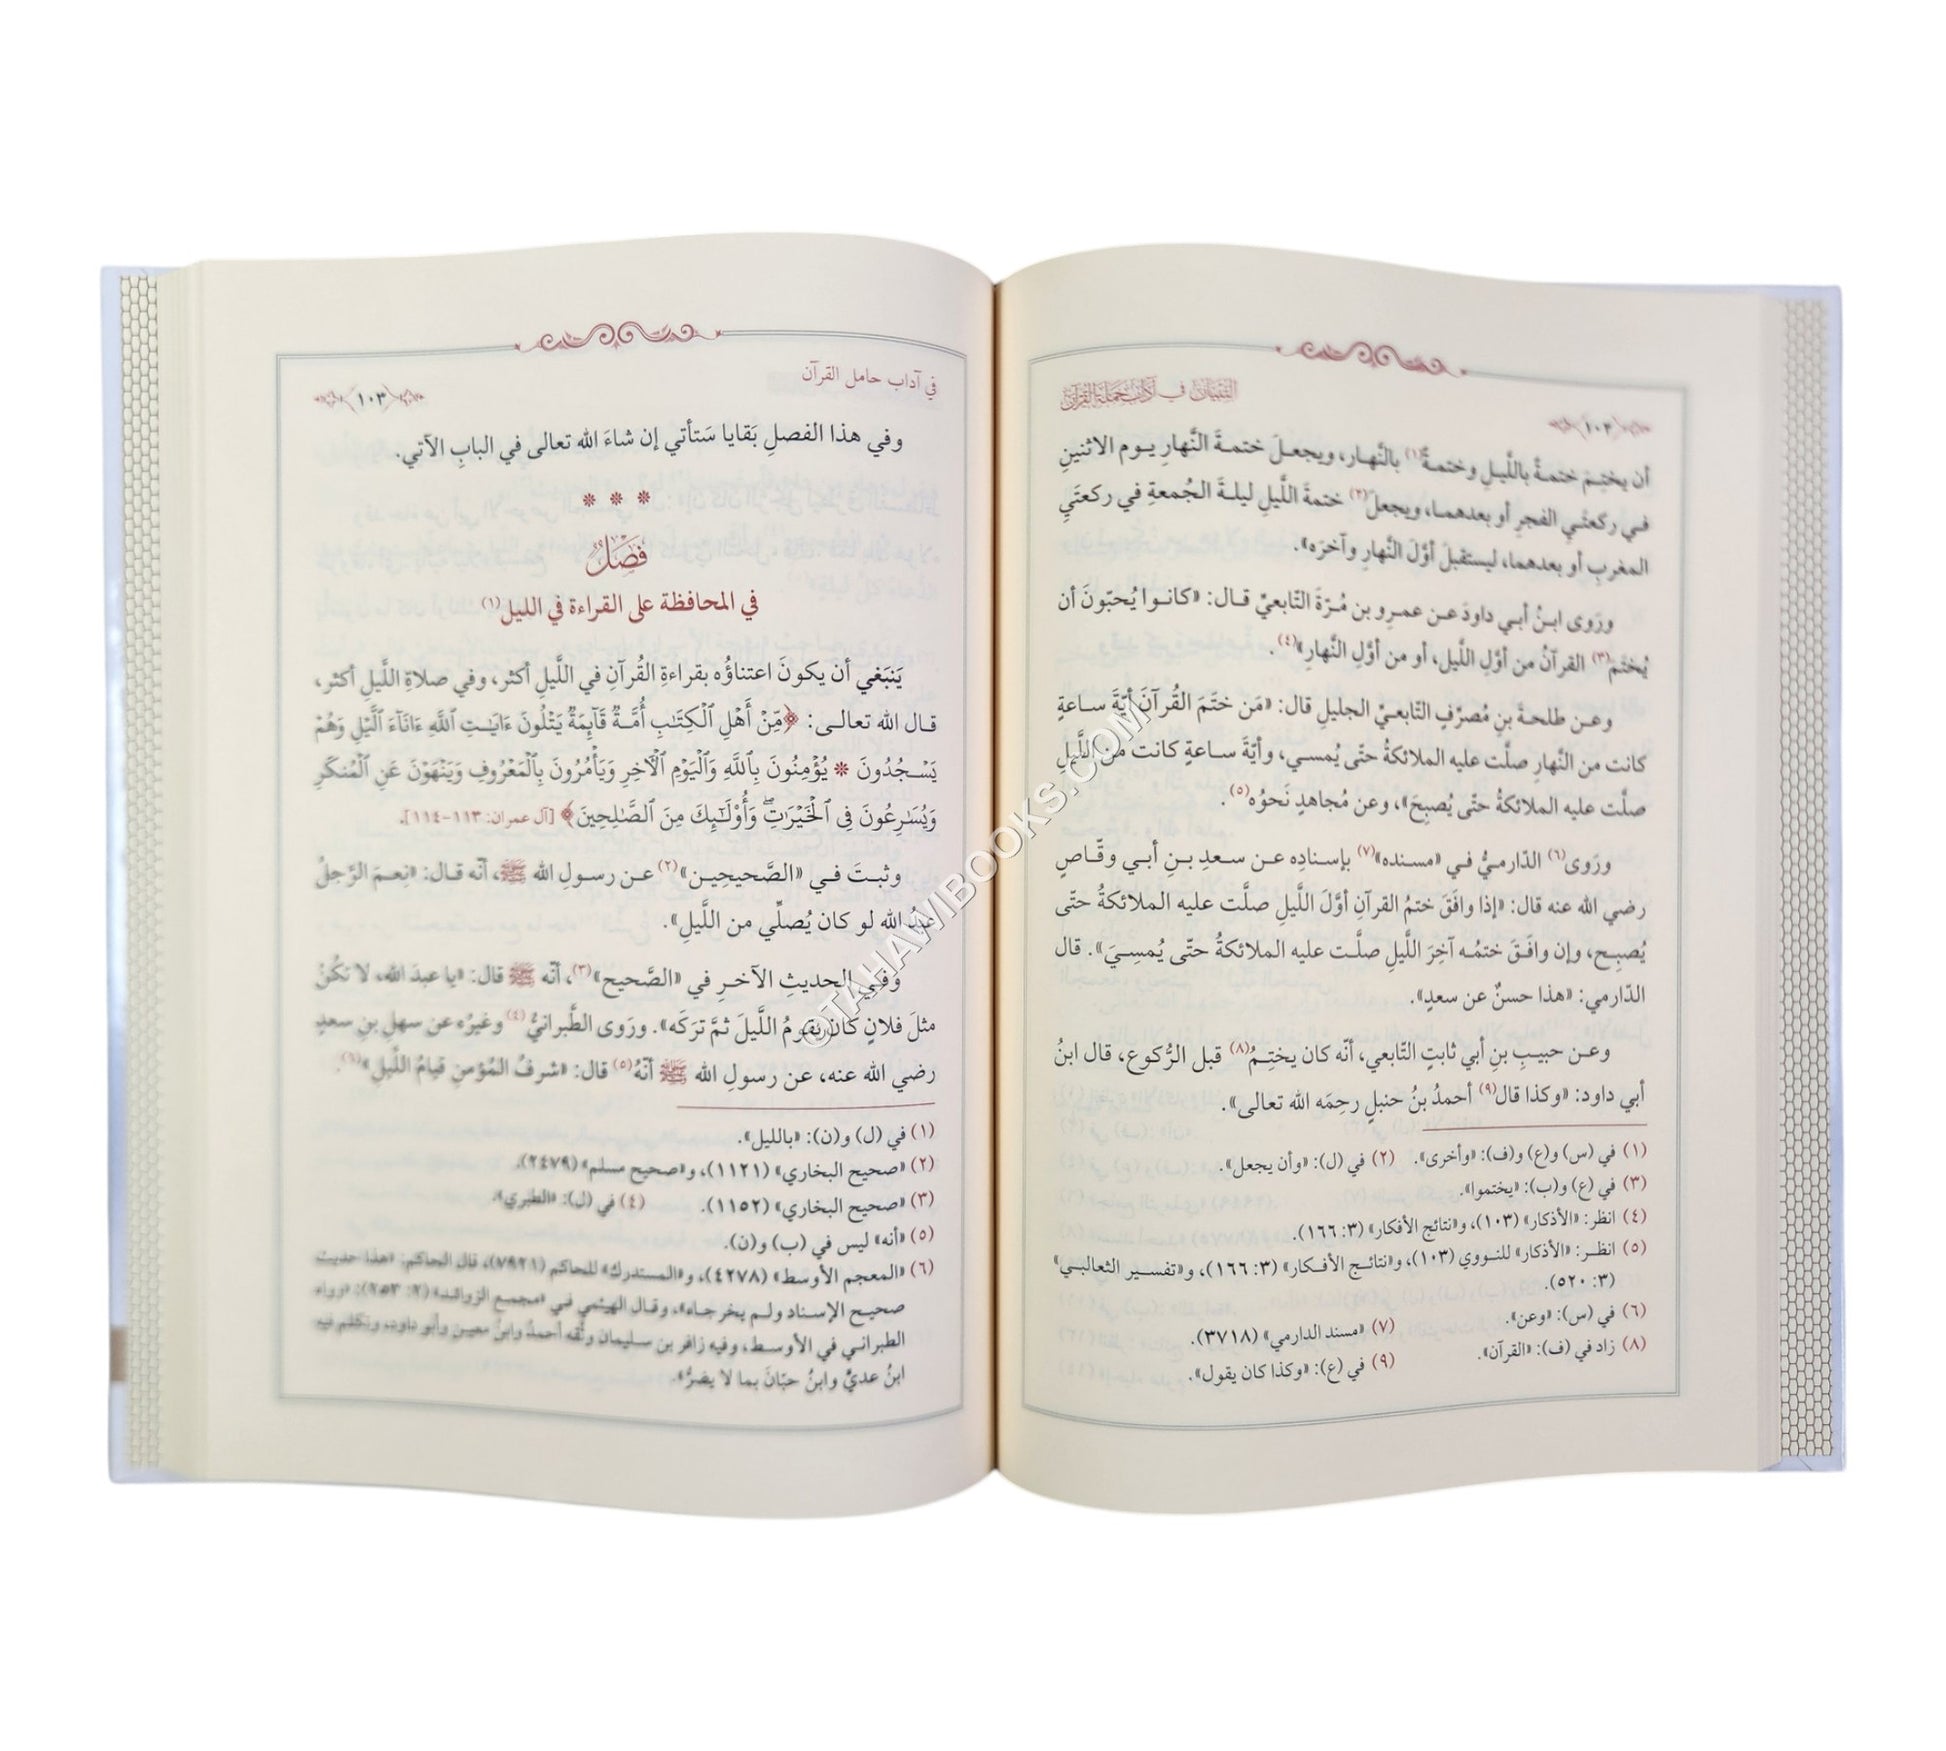 التبيان في آداب حملة القرآن
١٠٢
أن يختِمَ ختمةً باللَّيلِ وختمةً(١) بالنَّهار، ويجعلَ ختمةَ النَّهارِ يوم الاثنينِ
في ركعتَي الفجرِ أو بعدهما، ويجعلَ(٢) ختمةَ اللَّيلِ ليلةَ الجُمعةِ في ركعتَيِ
المغربِ أو بعدهما، ليستقبلَ أوَّلَ النَّهارِ وآخرَه».
ورَوى ابنُ أبي داودَ عن عمرِو بن مُرّةَ التّابعيِّ قال: «كانوا يُحبّونَ أن
يُختَمَ(٣) القرآنُ من أوَّلِ اللَّيل، أو من أوَّلِ النَّهارِ»(٤).
وعن طلحةَ بنِ مُصرِّفٍ التّابعيِّ الجليلِ قال: «مَن ختَمَ القُرآنَ أيّةَ ساعةٍ
كانت من النَّهارِ صلَّت عليه الملائكةُ حتّى يُمسي، وأيّةَ ساعةٍ كانت من اللَّيلِ
صلَّت عليه الملائكةُ حتّى يُصبِحَ»، وعن مُجاهدٍ نَحوُه(٥).
ورَوى(٦) الدّارميُّ في «مسنده»(٧) بإسنادِه عن سعدِ بنِ أبي وقّاصٍ
رضي الله عنه قال: «إذا وافَقَ ختمُ القرآنِ أوَّلَ اللَّيلِ صلَّت عليه الملائكةُ حتّى
يُصبِح، وإن وافَقَ ختمُه آخِرَ اللَّيلِ صلَّت عليه الملائكةُ حتّى يُمسِيَ». قال
الدّارمي: «هذا حسنٌ عن سعدٍ».
وعن حبيبِ بنِ أبي ثابتٍ التّابعي، أنّه كان يختِمُ(٨) قبل الرُّكوع، قال ابنُ
أبي داود: «وكذا قال(٩) أحمدُ بنُ حنبلٍ رحِمَه الله تعالى».
(١) في (س) و(ع) و(ف): «وأخرى». (٢) في (ل): «وأن يجعل».
(٣) في (ع) و(ب): «يختموا».
(٤) انظر: «الأذكار» (١٠٣)، و«نتائج الأفكار» (٣: ١٦٦).
(٥) انظر: «الأذكار» للنووي (١٠٣)، و«نتائج الأفكار» (٣: ١٦٦)، و«تفسير الثعالبي»
(٣: ٥٢٠).
(٦) في (س): «وعن». (٧) «مسند الدارمي» (٣٧١٨).
(٨) زاد في (ف): «القرآن». (٩) في (ع): «وكذا كان يقول».
في آداب حامل القرآن
١٠٣
وفي هذا الفصلِ بَقايا سَتأتي إن شاءَ الله تعالى في البابِ الآتي.
* * *
فَصْلٌ
في المحافظة على القراءة في الليل(١)
يَنبَغي أن يكونَ اعتناؤُه بقراءةِ القُرآنِ في اللَّيلِ أكثر، وفي صلاةِ اللَّيلِ أكثر،
قال الله تعالى: ﴿مِّنۡ أَهۡلِ ٱلۡكِتَٰبِ أُمَّةٞ قَآئِمَةٞ يَتۡلُونَ ءَايَٰتِ ٱللَّهِ ءَانَآءَ ٱلَّيۡلِ وَهُمۡ
يَسۡجُدُونَ * يُؤۡمِنُونَ بِٱللَّهِ وَٱلۡيَوۡمِ ٱلۡأٓخِرِ وَيَأۡمُرُونَ بِٱلۡمَعۡرُوفِ وَيَنۡهَوۡنَ عَنِ ٱلۡمُنكَرِ
وَيُسَٰرِعُونَ فِي ٱلۡخَيۡرَٰتِۖ وَأُوْلَٰٓئِكَ مِنَ ٱلصَّٰلِحِينَ﴾ [آل عمران: ١١٣-١١٤].
وثبتَ في «الصَّحيحِين»(٢) عن رسولِ الله ﷺ، أنّه قال: «نِعمَ الرَّجلُ
عبدُ الله لو كان يُصلِّي من اللَّيلِ».
وفي الحديثِ الآخرِ في «الصَّحيح»(٣)، أنّه ﷺ قال: «يا عبدَ الله، لا تكُنْ
مثلَ فلانٍ كان يقومُ اللَّيلَ ثمَّ تركَه». ورَوى الطَّبرانيُّ(٤) وغيرُه عن سهلِ بنِ سعدٍ
رضي الله عنه، عن رسولِ الله ﷺ أنّهُ(٥) قال: «شرفُ المُؤمنِ قيامُ اللَّيلِ»(٦).
(١) في (ل) و(ن): «بالليل».
(٢) «صحيح البخاري» (١١٢١)، و«صحيح مسلم» (٢٤٧٩).
(٣) «صحيح البخاري» (١١٥٢). (٤) في (ل): «الطبري».
(٥) «أنه» ليس في (ب) و(ن).
(٦) «المعجم الأوسط» (٤٢٧٨)، و«المستدرك» للحاكم (٧٩٢١)، قال الحاكم: «هذا حديث
صحيح الإسناد ولم يخرجاه»، وقال الهيثمي في «مجمع الزوائد» (٢: ٢٥٣): «رواه
الطبراني في الأوسط، وفيه زافر بن سليمان وثّقه أحمدُ وابنُ معين وأبو داود، وتكلم فيه
ابنُ عديٍّ وابنُ حبّانَ بما لا يضرُّ».
©TAHAWIBOOKS.COM